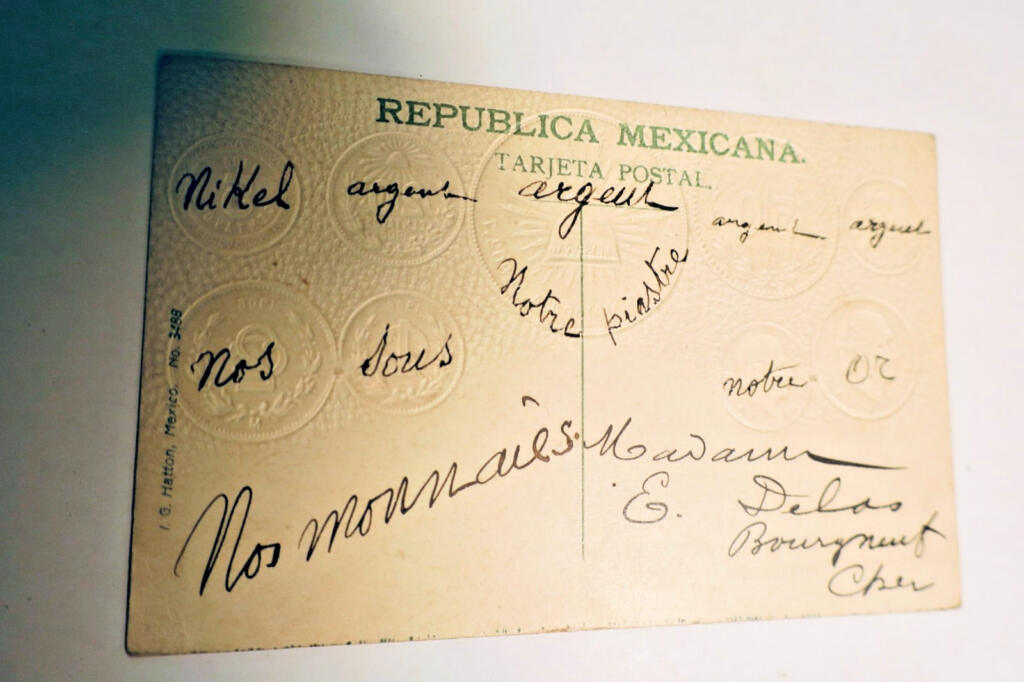 REPUBLICA MEXICANA.
TARJETA POSTAL.
Nikel argent argent argent argent
Notre piastre
Nos sous notre or
Nos monnaies.
Madame
E. Delas
Bourgneuf
Cher
I. G. Hatton, Mexico. No. 3486